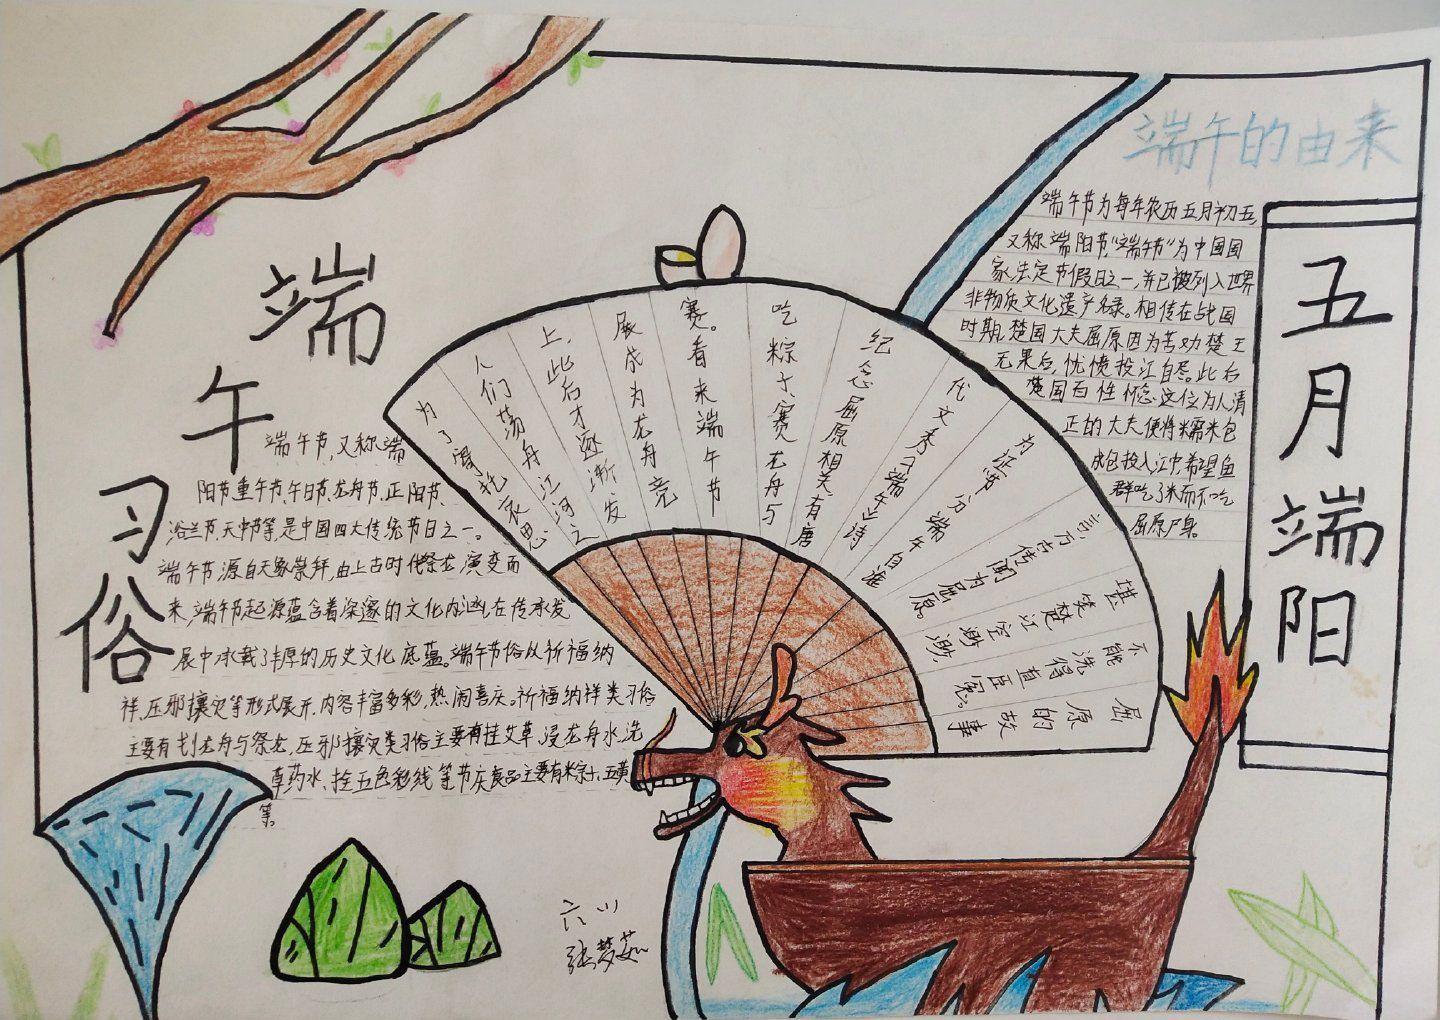 端午的由来
端午节为每年农历五月初五,
又称端阳节,“端午节”为中国国
家法定节假日之一,并已被列入世界
非物质文化遗产名录。相传在战国
时期,楚国大夫屈原因为苦劝楚王
无果后,忧愤投江自尽。此后
楚国百姓怀念这位为人清
正的大夫便将糯米包
成包投入江中,希望鱼
群吃了米而不吃
屈原尸身。
五月端阳
端午习俗
端午节,又称端
阳节、重午节、午日节、龙舟节、正阳节、
浴兰节、天中节等,是中国四大传统节日之一。
端午节,源自天象崇拜,由上古时代祭龙演变而
来,端午节起源蕴含着深邃的文化内涵,在传承发
展中承载了丰厚的历史文化底蕴。端午节俗以祈福纳
祥、压邪攘灾等形式展开,内容丰富多彩,热闹喜庆。祈福纳祥类习俗
主要有划龙舟与祭龙,压邪攘灾类习俗主要有挂艾草、浸龙舟水、洗
草药水、拴五色彩线等节庆食品主要有粽子、五黄
等。
为了寄托哀思
人们荡舟江河之
上,此后才逐渐发
展成为龙舟竞
赛。看来端午节
吃粽子、赛龙舟与
纪念屈原相关,有唐
代文秀《端午》诗
为证:节分端午自谁
言,万古传闻为屈原。
堪笑楚江空渺渺,
不能洗得直臣冤。
屈原的故事
六川
张梦茹